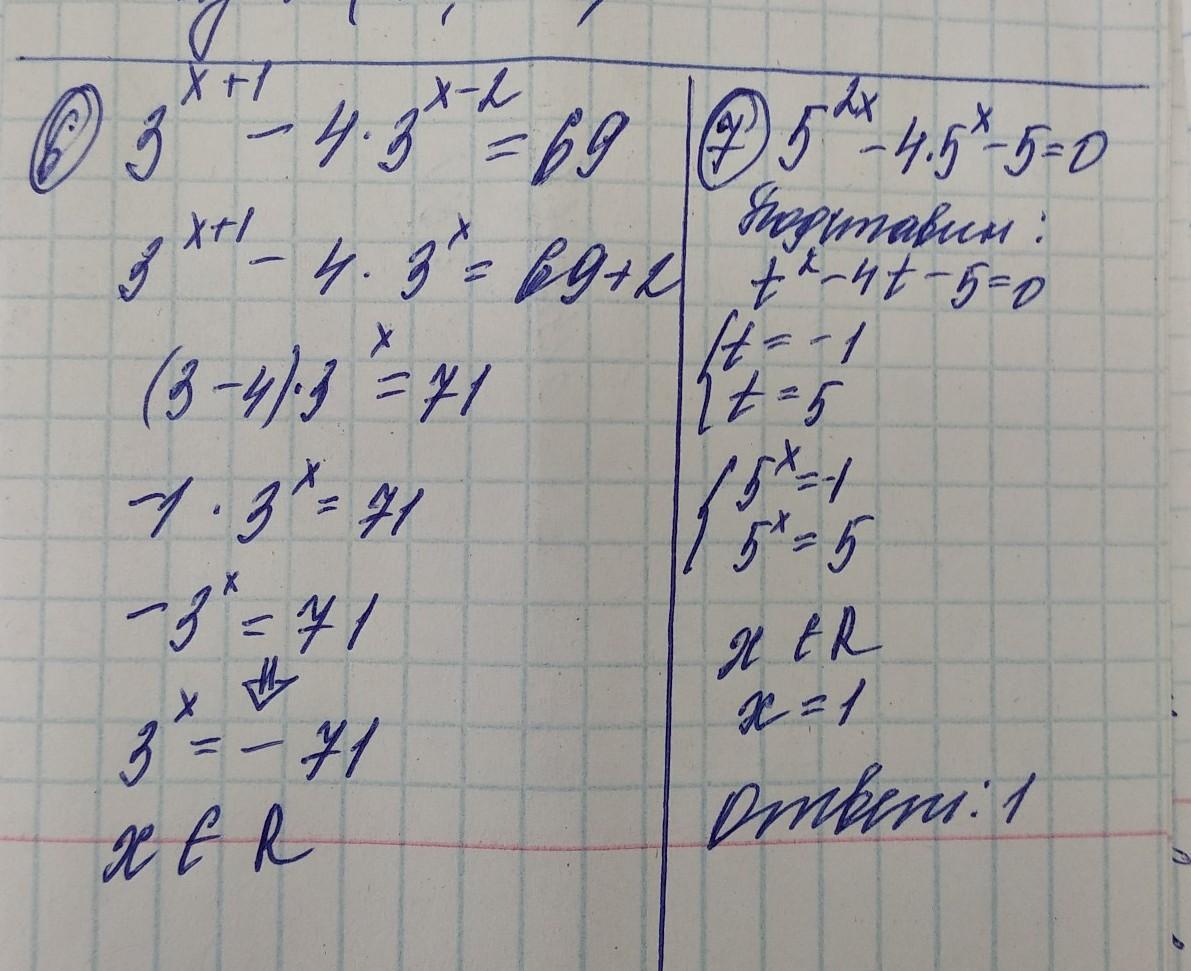 6 3^{x+1} - 4·3^{x-2} = 69
3^{x+1} - 4·3^x = 69+2
(3-4)·3^x = 71
-1·3^x = 71
-3^x = 71
⇓
3^x = -71
x ∈ R
7 5^{2x} - 4·5^x - 5 = 0
Подставим:
t² - 4t - 5 = 0
{ t = -1
t = 5
{ 5^x = -1
5^x = 5
x ∈ R
x = 1
Ответ: 1